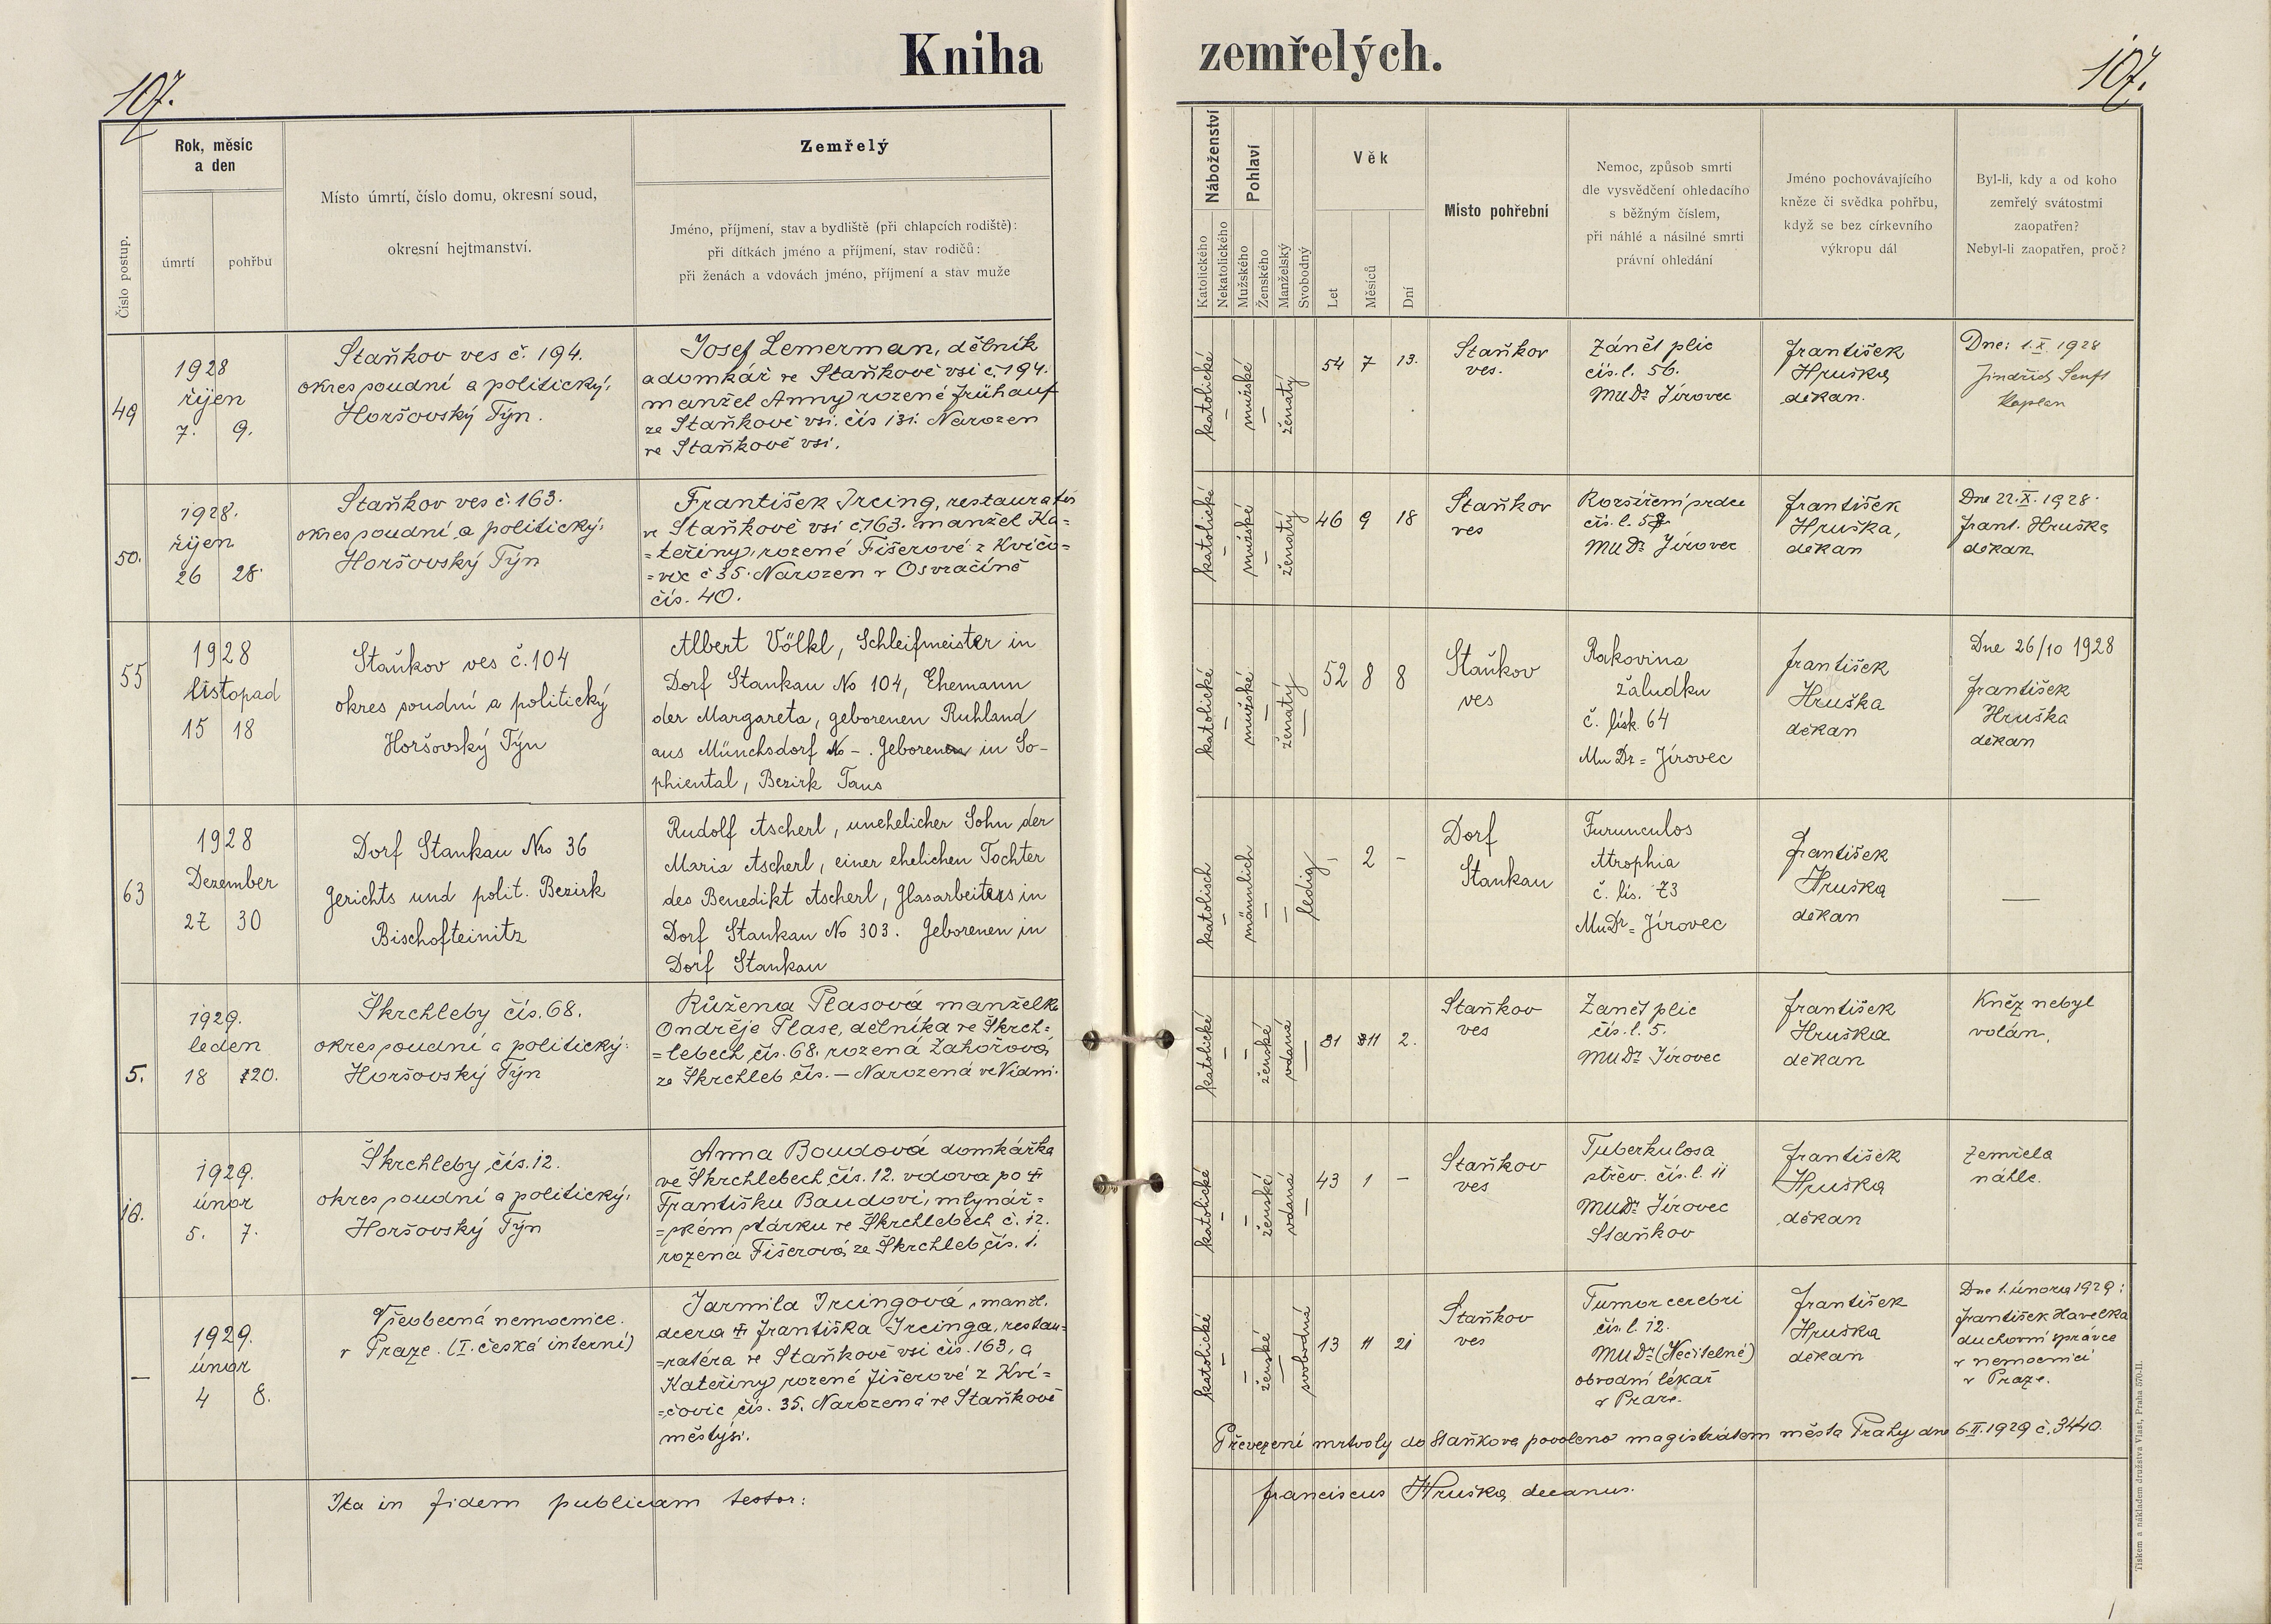 Kniha zemřelých.
107.
107.
Číslo postup.
Rok, měsíc
a den
úmrtí
pohřbu
Místo úmrtí, číslo domu, okresní soud,
okresní hejtmanství.
Zemřelý
Jméno, příjmení, stav a bydliště (při chlapcích rodiště):
při dítkách jméno a příjmení, stav rodičů:
při ženách a vdovách jméno, příjmení a stav muže
Náboženství
Katolického
Nekatolického
Pohlaví
Mužského
Ženského
Manželský
Svobodný
Věk
Let
Měsíců
Dní
Místo pohřební
Nemoc, způsob smrti
dle vysvědčení ohledacího
s běžným číslem,
při náhlé a násilné smrti
právní ohledání
Jméno pochovávajícího
kněze či svědka pohřbu,
když se bez církevního
výkropu dál
Byl-li, kdy a od koho
zemřelý svátostmi
zaopatřen?
Nebyl-li zaopatřen, proč?
49
1928
říjen
7. 9.
Staňkov ves č. 194.
okres soudní a politický:
Horšovský Týn.
Josef Lemerman, dělník
a domkář ve Staňkově vsi č. 194.
manžel Anny rozené Frühauf
ze Staňkově vsi. čís 131. Narozen
ve Staňkově vsi.
katolické
mužské
ženatý
54 7 13.
Staňkov
ves.
Zánět plic
čís. l. 56.
MUDr Jírovec
František
Hruška
děkan.
Dne: 1.X. 1928
Jindřich Senft
Kaplan
50.
1928.
říjen
26 28.
Staňkov ves č. 163.
okres soudní a politický:
Horšovský Týn
František Ircing, restauratér
ve Staňkově vsi č. 163. manžel Ka=
=teřiny, rozené Fišerové z Kvíčo=
=vic č 35. Narozen v Osvračíně
čís. 40.
katolické
mužské
ženatý
46 9 18
Staňkov
ves
Rozšíření srdce
MUDr Jírovec
František
Hruška,
děkan
Dne 22.X. 1928.
Frant. Hruška
děkan
55
1928
listopad
15 18
Staňkov ves č. 104
okres soudní a politický
Horšovský Týn
Albert Völkl, Schleifmeister in
Dorf Stankau No 104, Ehemann
der Margareta, geborenen Ruhland
aus Münchsdorf No -. Geboren in So-
phiental, Bezirk Taus
katolické
mužské
ženatý
52 8 8
Staňkov
ves
Rakovina
žaludku
č. lísk. 64
MuDr = Jírovec
František
Hruška
děkan
Dne 26/10 1928
František
Hruška
děkan
63
1928
Dezember
27 30
Dorf Stankau Nro 36
Gerichts und polit. Bezirk
Bischofteinitz
Rudolf Ascherl, unehelicher Sohn der
Maria Ascherl, einer ehelichen Tochter
des Benedikt Ascherl, Glasarbeiters in
Dorf Stankau No 303. Geborenen in
Dorf Stankau
katolisch
männlich
ledig
- 2 -
Dorf
Stankau
Furunculos
Atrophia
č. lís. 73
MuDr = Jírovec
František
Hruška
děkan
—
5.
1929.
leden
18 20.
Škrchleby čís. 68.
okres soudní a politický:
Horšovský Týn
Růžena Plasová manželka
Ondřeje Plase, dělníka ve Škrch=
=lebech čís. 68. rozená Zahořová
ze Škrchleb čís. — Narozená ve Vídni.
katolické
ženské
vdaná
31 11 2.
Staňkov
ves
Zanět plic
čís. l. 5.
MUDr Jírovec
František
Hruška
děkan
Kněz nebyl
volán.
10.
1929.
únor
5. 7.
Škrchleby čís. 12.
okres soudní a politický:
Horšovský Týn
Anna Boudová domkářka
ve Škrchlebech čís. 12. vdova po ✝
Františku Baudovi, mlynář=
=ském stárku ve Škrchlebech č. 12.
rozená Fišerová ze Škrchleb čís. 1.
katolické
ženské
vdaná
43 1 -
Staňkov
ves
Tuberkulosa
střev. čís. l. 11
MUDr Jírovec
Staňkov
František
Hruška
děkan
Zemřela
náhle.
—
1929.
únor
4 8.
Všeobecná nemocnice.
v Praze. (I. česká interní)
Jarmila Ircingová, manžl.
dcera ✝ Františka Ircinga, restau=
=ratéra ve Staňkově vsi čís. 163, a
Kateřiny rozené Fišerové z Kví=
=čovic čís. 35. Narozená ve Staňkově
městysi.
katolické
ženské
svobodná
13 11 21
Staňkov
ves
Tumor cerebri
čís. l. 12.
MUDr (Nečitelné)
obvodní lékař
v Praze.
František
Hruška
děkan
Dne 1. února 1929:
František Havelka
duchovní správce
v nemocnici
v Praze.
Převezení mrtvoly do Staňkova povoleno magistrátem města Prahy dne 6.II.1929 č. 3440.
Ita in fidem publicam testor:
Franciscus Hruška decanus.
Tiskem a nákladem družstva Vlast, Praha 570-II.